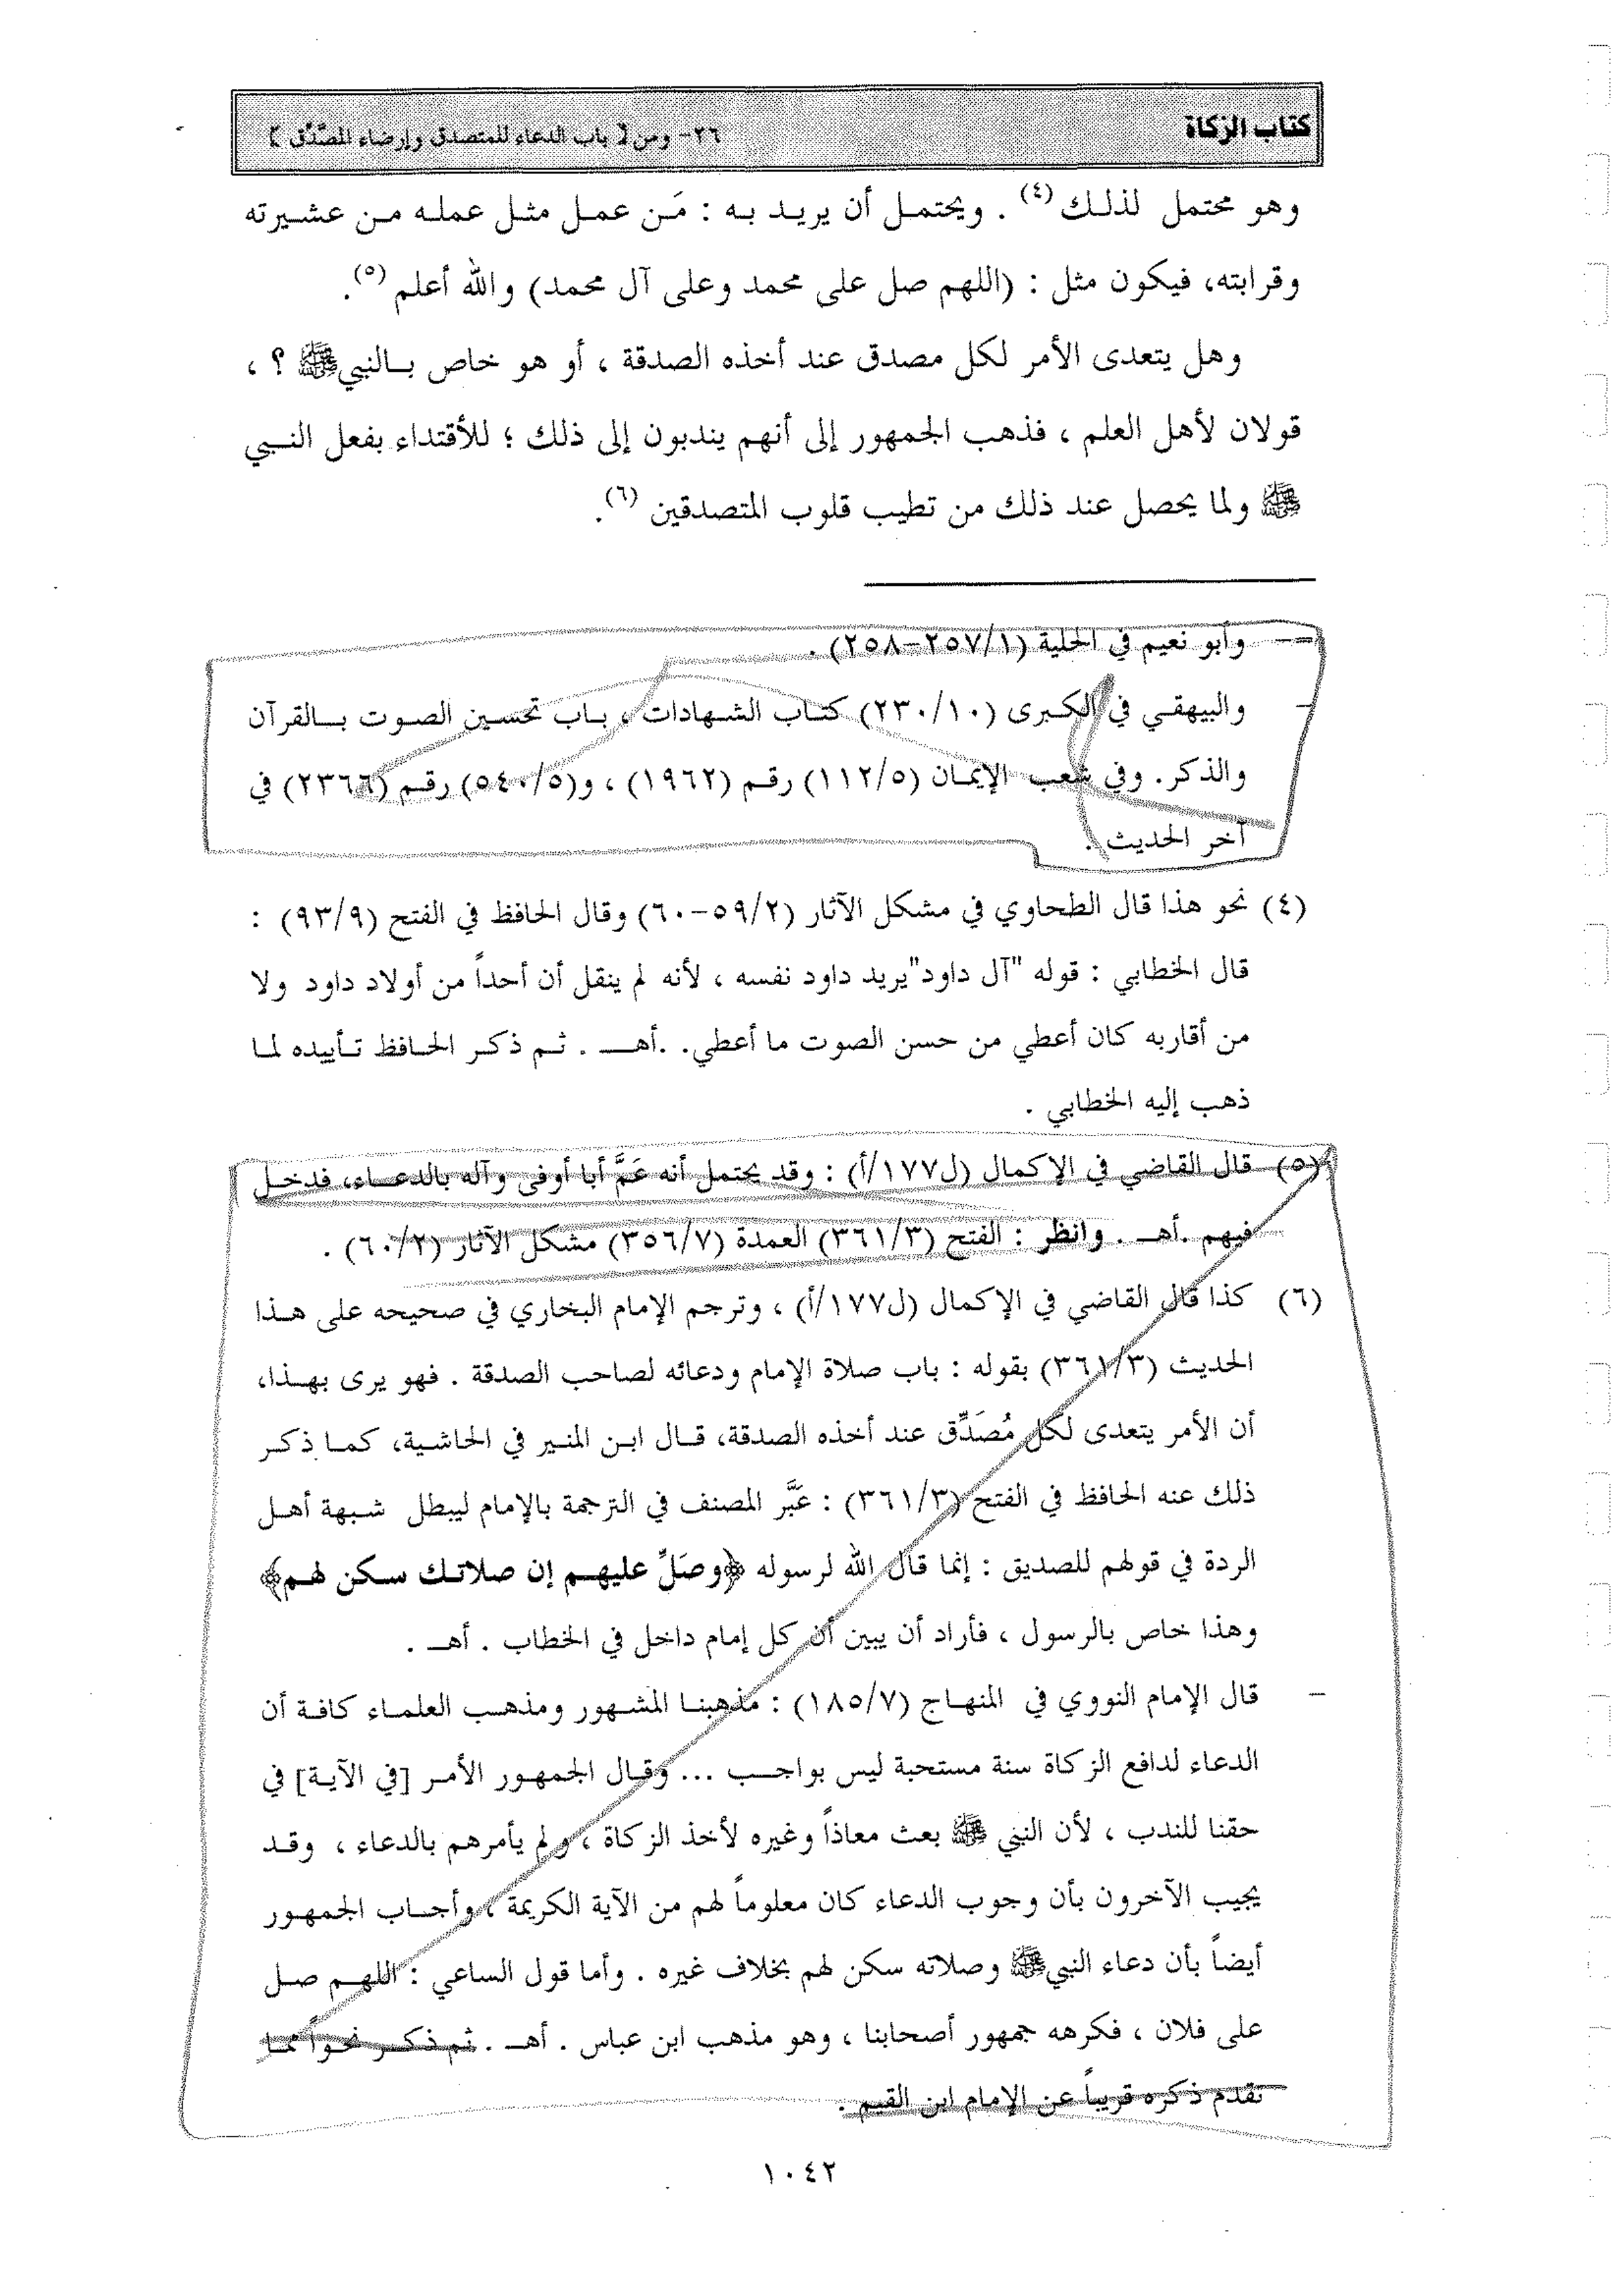 كتاب الزكاة
٢٦- ومن [ باب الدعاء للمتصدق وإرضاء المصَّدِّق ]
وهو محتمل لذلك (٤) . ويحتمل أن يريد به : مَن عمل مثل عمله من عشيرته
وقرابته، فيكون مثل : (اللهم صل على محمد وعلى آل محمد) والله أعلم (٥).
وهل يتعدى الأمر لكل مصدق عند أخذه الصدقة ، أو هو خاص بالنبي ﷺ ؟ ،
قولان لأهل العلم ، فذهب الجمهور إلى أنهم يندبون إلى ذلك ؛ للأقتداء بفعل النبي
ﷺ ولما يحصل عند ذلك من تطيب قلوب المتصدقين (٦).
== - وأبو نعيم في الحلية (٢٥٧/١-٢٥٨) .
- والبيهقي في الكبرى (٢٣٠/١٠) كتاب الشهادات ، باب تحسين الصوت بالقرآن
والذكر. وفي شعب الإيمان (١١٢/٥) رقم (١٩٦٢) ، و(٥٤٠/٥) رقم (٢٣٦٦) في
آخر الحديث .
(٤) نحو هذا قال الطحاوي في مشكل الآثار (٥٩/٢-٦٠) وقال الحافظ في الفتح (٩٣/٩) :
قال الخطابي : قوله "آل داود" يريد داود نفسه ، لأنه لم ينقل أن أحداً من أولاد داود ولا
من أقاربه كان أعطي من حسن الصوت ما أعطي. .أهـ . ثم ذكر الحافظ تأييده لما
ذهب إليه الخطابي .
(٥) قال القاضي في الإكمال (ل١٧٧/أ) : وقد يحتمل أنه عَمَّ أبا أوفى وآله بالدعاء، فدخل
فيهم .أهـ . وانظر : الفتح (٣٦١/٣) العمدة (٣٥٦/٧) مشكل الآثار (٦٠/٢) .
(٦) كذا قال القاضي في الإكمال (ل١٧٧/أ) ، وترجم الإمام البخاري في صحيحه على هذا
الحديث (٣٦١/٣) بقوله : باب صلاة الإمام ودعائه لصاحب الصدقة . فهو يرى بهذا،
أن الأمر يتعدى لكل مُصَدِّق عند أخذه الصدقة، قال ابن المنير في الحاشية، كما ذكر
ذلك عنه الحافظ في الفتح (٣٦١/٣) : عَبَّر المصنف في الترجمة بالإمام ليبطل شبهة أهل
الردة في قولهم للصديق : إنما قال الله لرسوله ﴿وصَلِّ عليهم إن صلاتك سكن لهم﴾
وهذا خاص بالرسول ، فأراد أن يبين أن كل إمام داخل في الخطاب . أهـ .
- قال الإمام النووي في المنهاج (١٨٥/٧) : مذهبنا المشهور ومذهب العلماء كافة أن
الدعاء لدافع الزكاة سنة مستحبة ليس بواجب ... وقال الجمهور الأمر [في الآية] في
حقنا للندب ، لأن النبي ﷺ بعث معاذاً وغيره لأخذ الزكاة ، ولم يأمرهم بالدعاء ، وقد
يجيب الآخرون بأن وجوب الدعاء كان معلوماً لهم من الآية الكريمة ، وأجاب الجمهور
أيضاً بأن دعاء النبي ﷺ وصلاته سكن لهم بخلاف غيره . وأما قول الساعي : اللهم صل
على فلان ، فكرهه جمهور أصحابنا ، وهو مذهب ابن عباس . أهـ . ثم ذكر نحواً مما
تقدم ذكره قريباً عن الإمام ابن القيم .
١٠٤٢